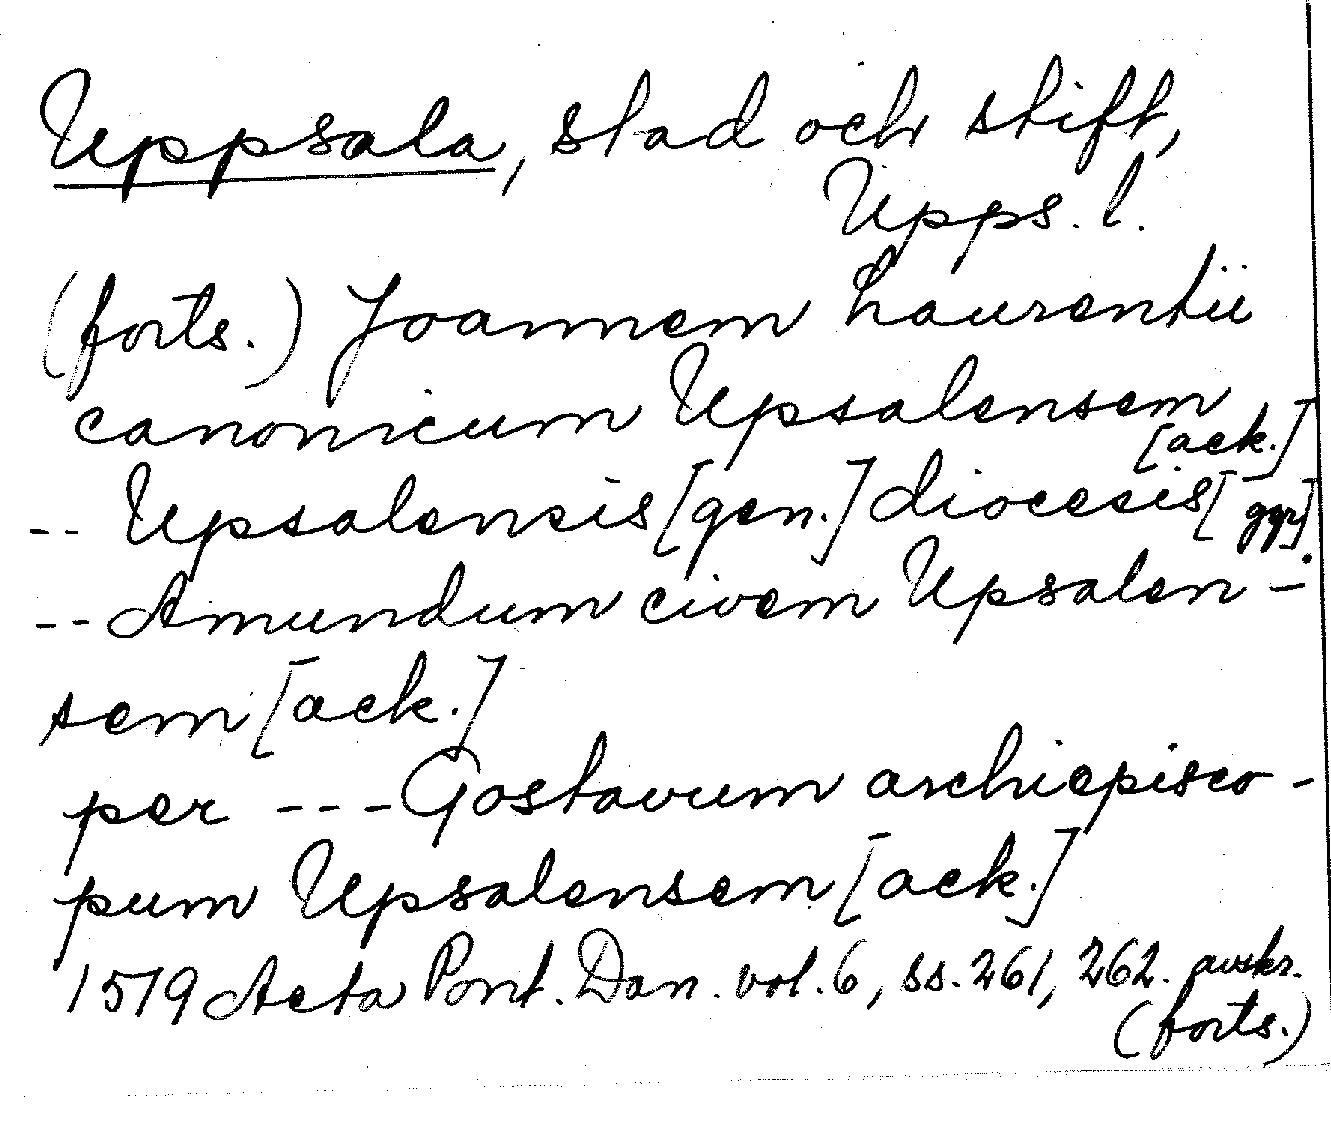 Uppsala, stad och stift,
Upps. l.
(forts.) Joannem Laurentii
canonicum Upsalensem
[ack.]
-- Upsalensis [gen.] diocesis [ggr].
-- Amundum civem Upsalen-
sem [ack.]
per --- Gostavum archiepisco-
pum Upsalensem [ack.]
1519 Acta Pont. Dan. vol. 6, ss. 261, 262. avskr.
(forts.)